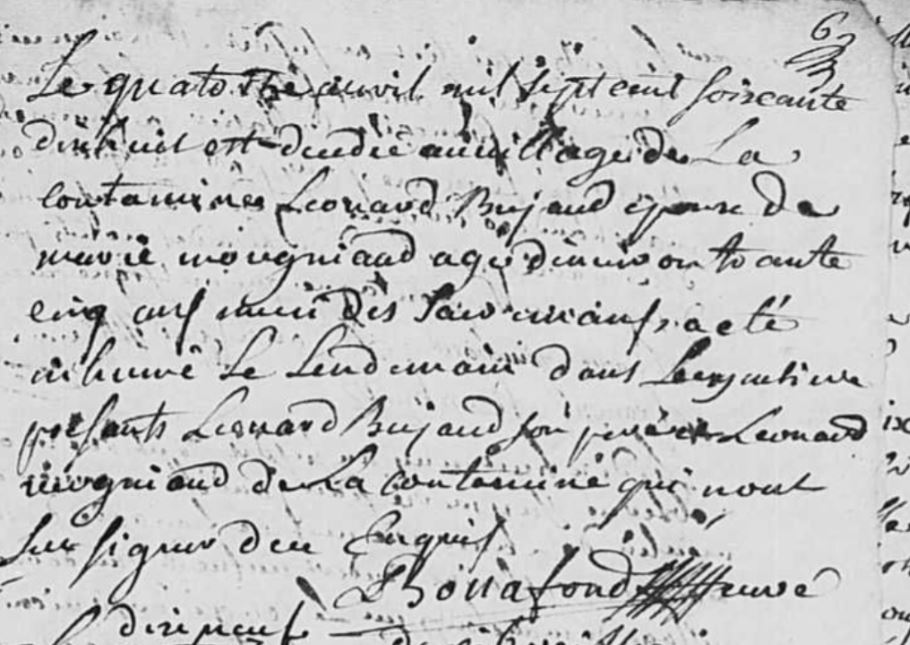 6
Le quatorze avril mil sept cent soixante
dixhuit est décédé au village de La
contamines Leonard Bujaud epoux de
marie mougniaud agé d'environ trante
cinq ans muni des sacremans, a eté
inhumé Le Lendemain dans Le cymetiere
présants Leonard Bujaud son pere et Leonard
mogniaud de La contamine qui nont
sur signer de ce Enquis
Bonafond curé